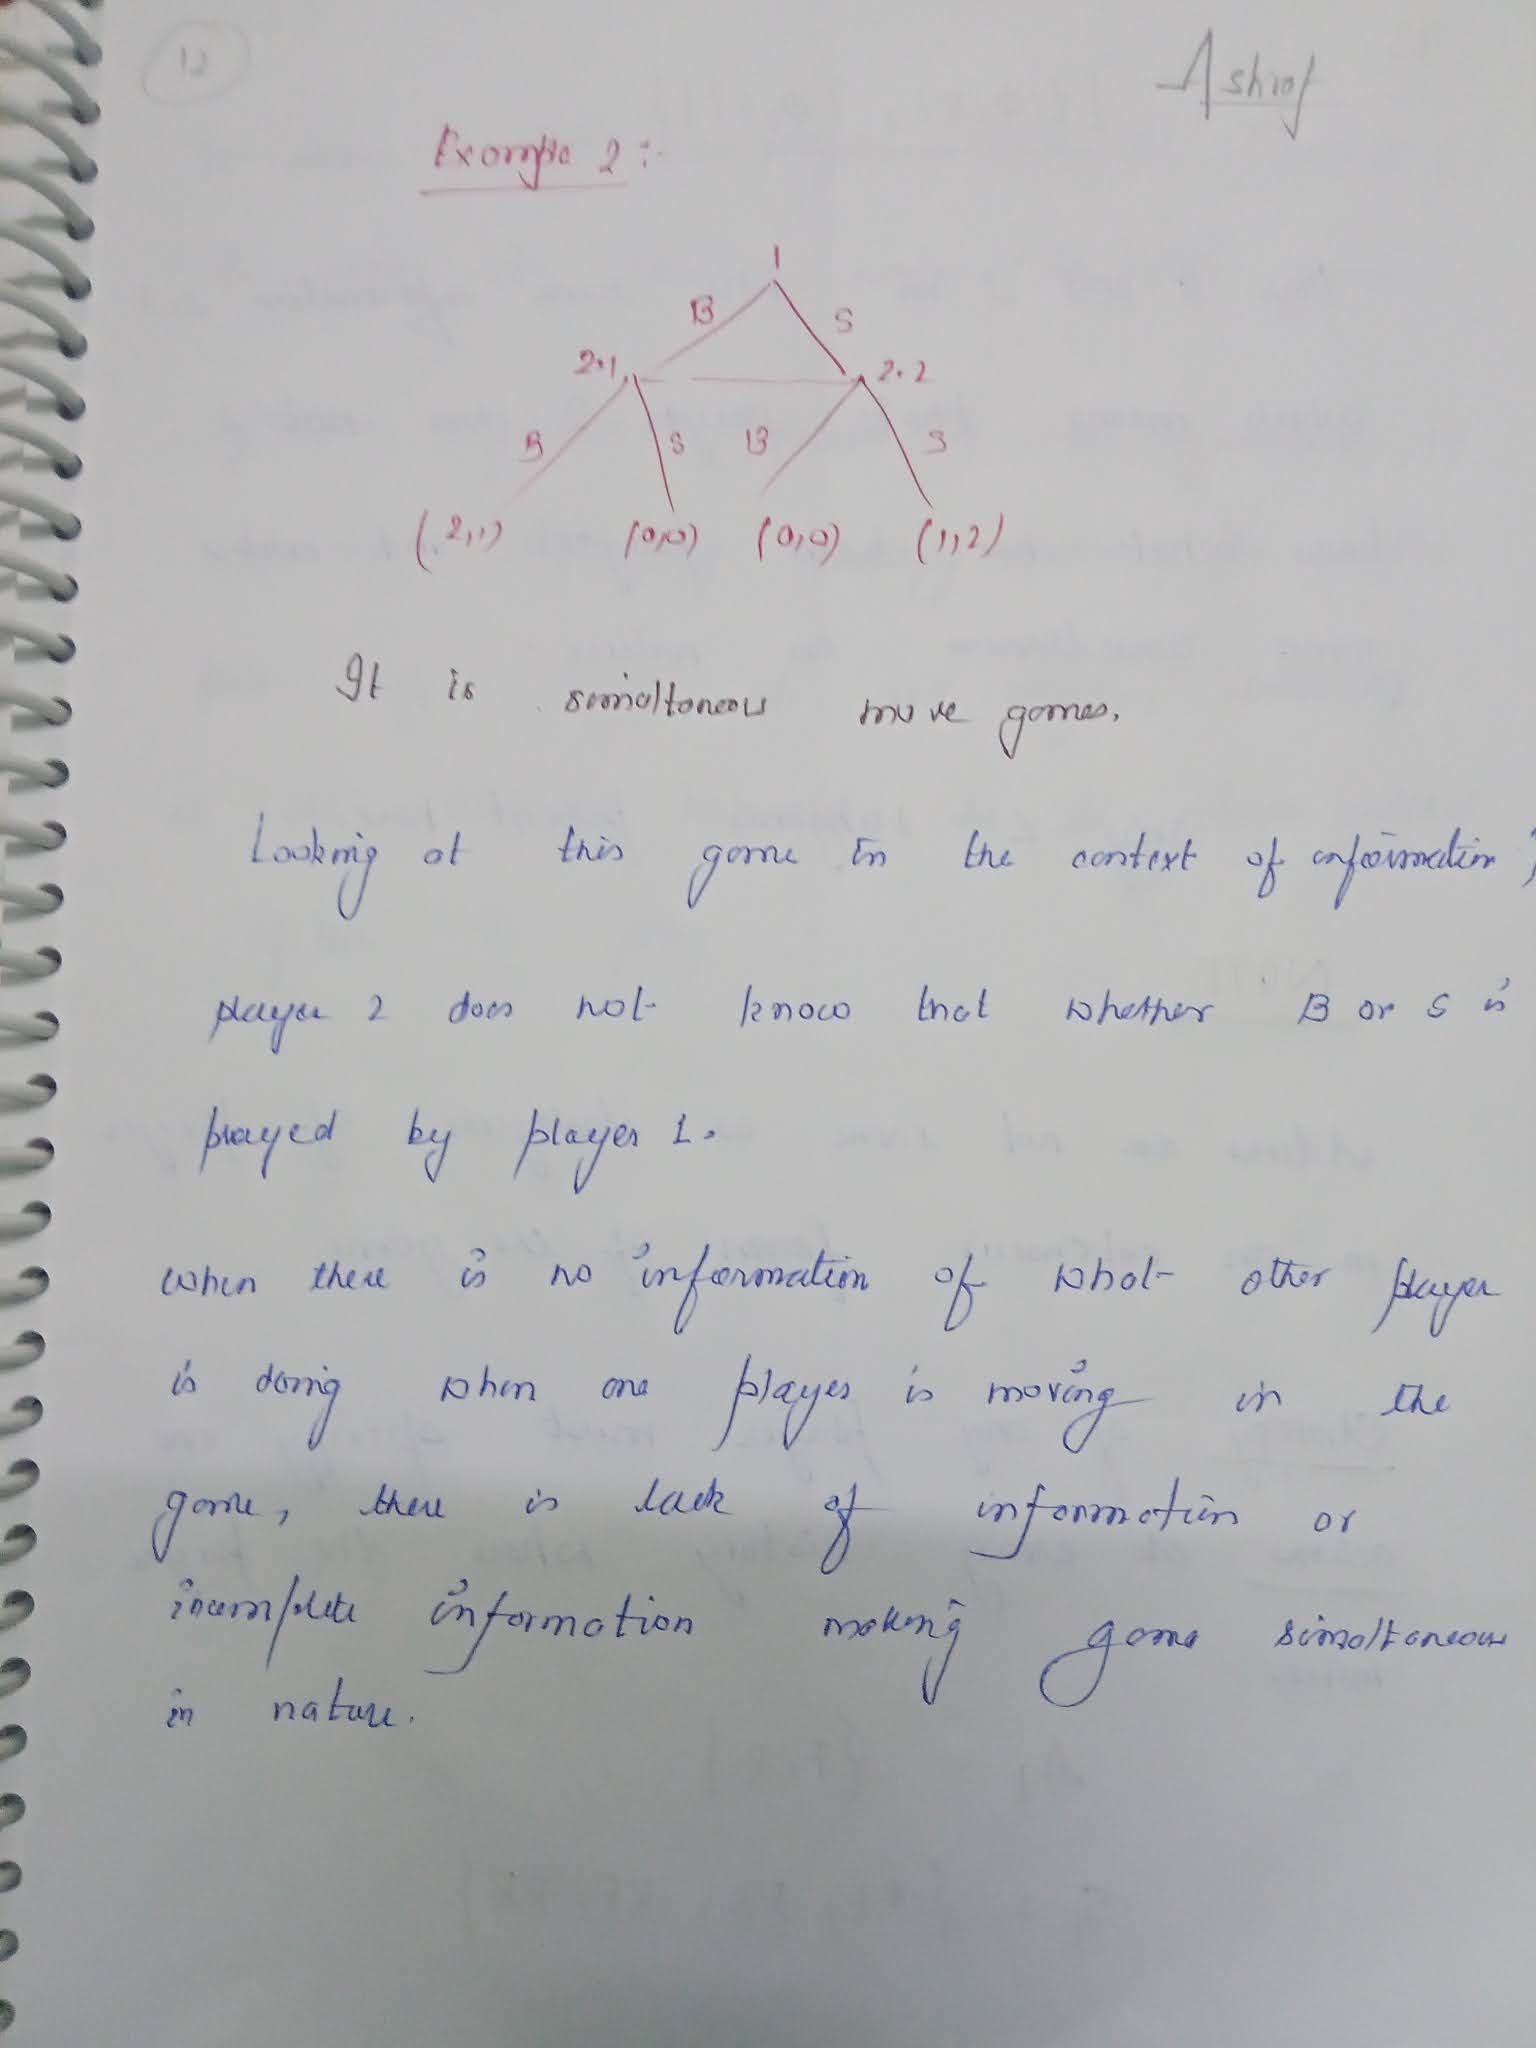 12
Ashraf
Example 2 :-
1
B S
2.1 2.2
B S B S
(2,1) (0,0) (0,0) (1,2)
It is simultaneous move games.
Looking at this game in the context of information,
player 2 does not know that whether B or S is
played by player 1.
when there is no information of what other player
is doing when one player is moving in the
game, there is lack of information or
incomplete information making game simultaneous
in nature.